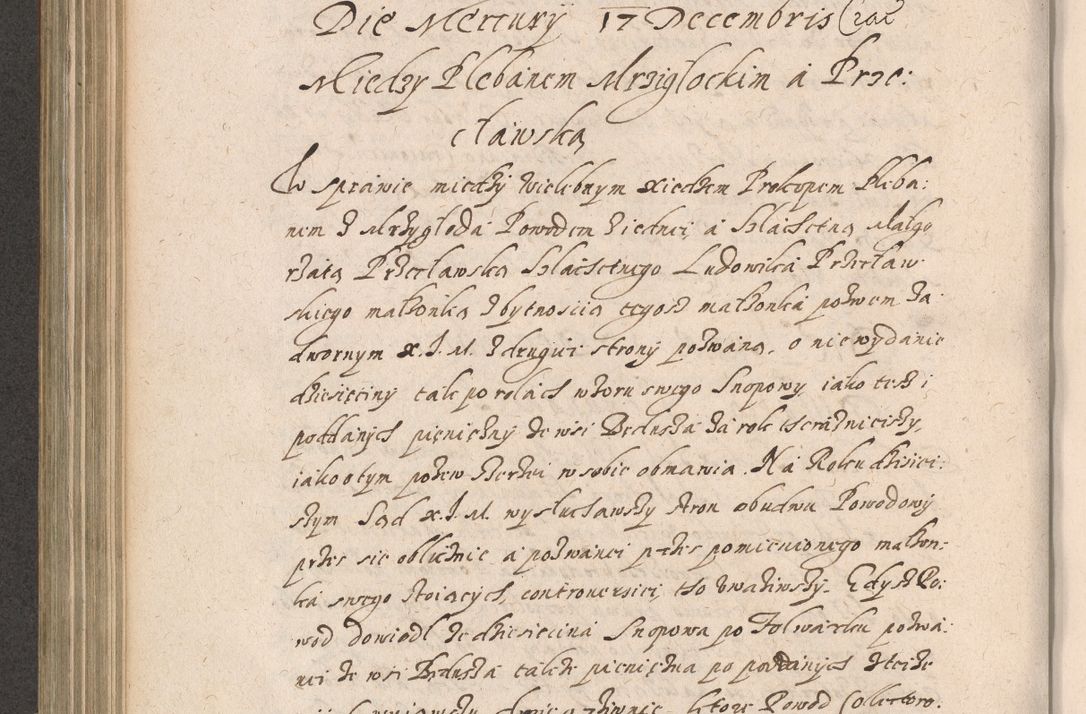 Die Mercurÿ 17 Decembris
Miedzy Plebanem Mrzigłockim a Prze:
cławską
W sprawie miedzÿ Wielebnym xiedzem Prokopem Pleba:
nem z Mrzÿgłoda Powodem z iednei a Szlachetną Małgo
rzatą Przecławską Szlachetnego Ludowika Przecław
skiego małżonką z bytnoscią tegosz małżonka pozwem za
dwornym x. J. M. z drugiei stronÿ pozwaną, o nie wydanie
dziesięcinÿ tak po rolach wtoru swego Snopowÿ iako tesz i
poddanÿch pieniężnÿ ze wsi Będusza za rok teraznieiszÿ,
iako o tym pozew szerzei w sobie obmawia. Na Roku dzisiei:
szÿm Sąd x. J. M. wysłuchawszÿ stron obudwu Powodowÿ
przes sie oblicznie a pozwanei przes pomienionego małżon:
ka swego stoiącÿch, controuersiei, to uważiwszÿ. Gdysz Po:
wod dowiodł że dziesiecina Snopowa po Folwarku pozwa:
nei ze wsi Będusza także pieniężna po poddanÿch
ktore Powod Collectoro: